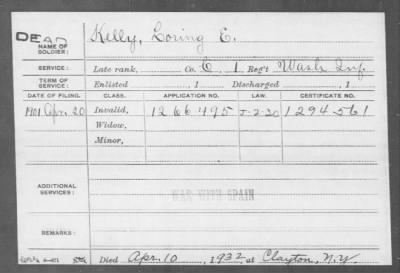 DEAD
NAME OF SOLDIER: Kelly, Loring E.
SERVICE: Late rank, Co. C, 1 Reg't Wash Inf.
TERM OF SERVICE: Enlisted , 1 Discharged , 1
DATE OF FILING. CLASS. APPLICATION NO. LAW. CERTIFICATE NO.
1901 Apr. 20 Invalid, 1266495 J-2-20 1294561
Widow,
Minor,
ADDITIONAL SERVICES: WAR WITH SPAIN
REMARKS:
Died Apr. 10, 1932 at Clayton, N.Y.